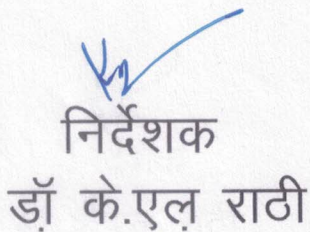 निर्देशक
डॉ के.एल राठी